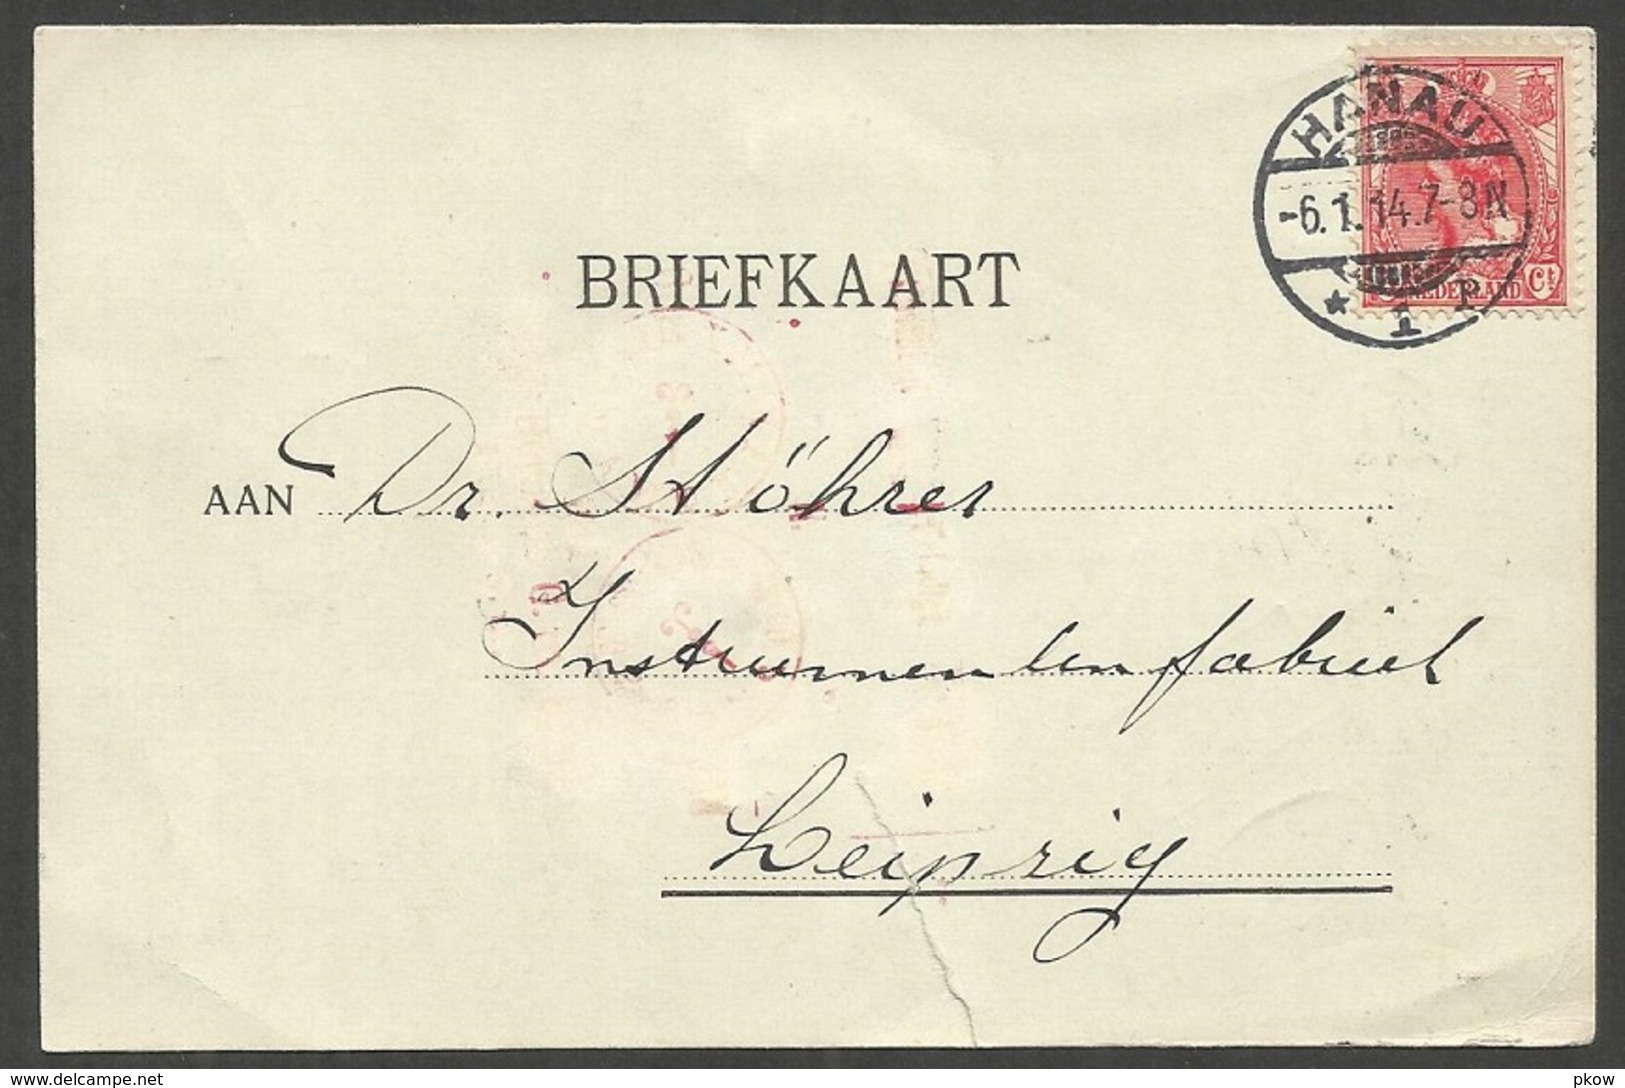 HANAU
-6.1.14.7-8N
* 1 P
NEDERLAND Ct
BRIEFKAART
AAN Dr. Stöhrer
Instrumentenfabriek
Leipzig
delcampe.net
pkow